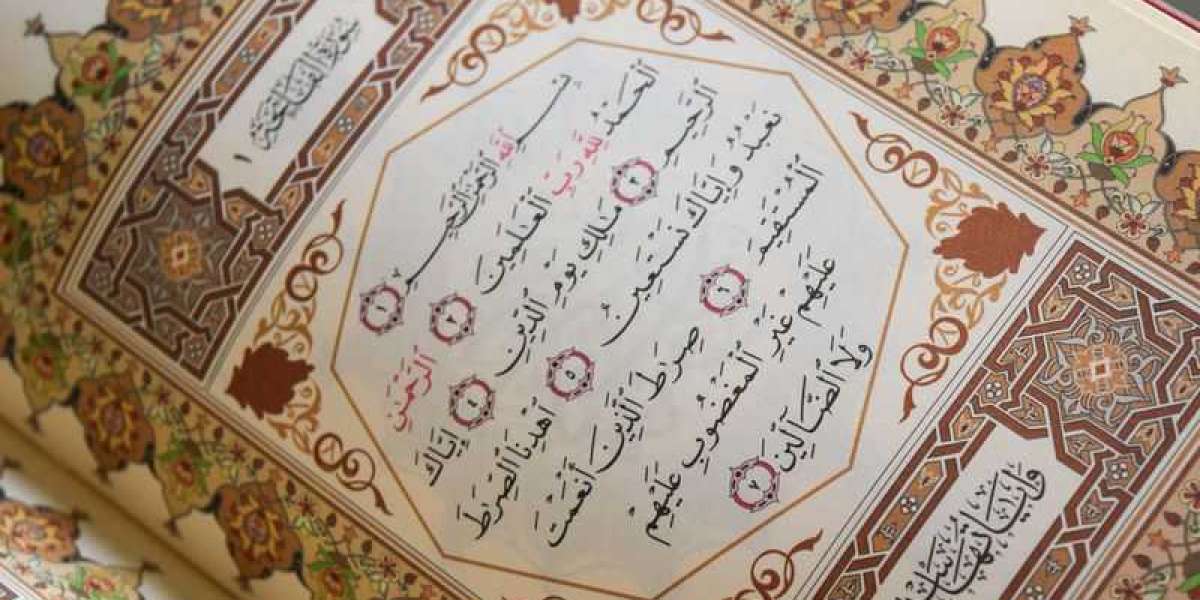 سُورَةُ الفَاتِحَةِ ١
بِسْمِ ٱللَّهِ ٱلرَّحْمَٰنِ ٱلرَّحِيمِ ١
ٱلْحَمْدُ لِلَّهِ رَبِّ ٱلْعَٰلَمِينَ ٢ ٱلرَّحْمَٰنِ
ٱلرَّحِيمِ ٣ مَٰلِكِ يَوْمِ ٱلدِّينِ ٤ إِيَّاكَ
نَعْبُدُ وَإِيَّاكَ نَسْتَعِينُ ٥ ٱهْدِنَا ٱلصِّرَٰطَ
ٱلْمُسْتَقِيمَ ٦ صِرَٰطَ ٱلَّذِينَ أَنْعَمْتَ
عَلَيْهِمْ غَيْرِ ٱلْمَغْضُوبِ عَلَيْهِمْ
وَلَا ٱلضَّآلِّينَ ٧